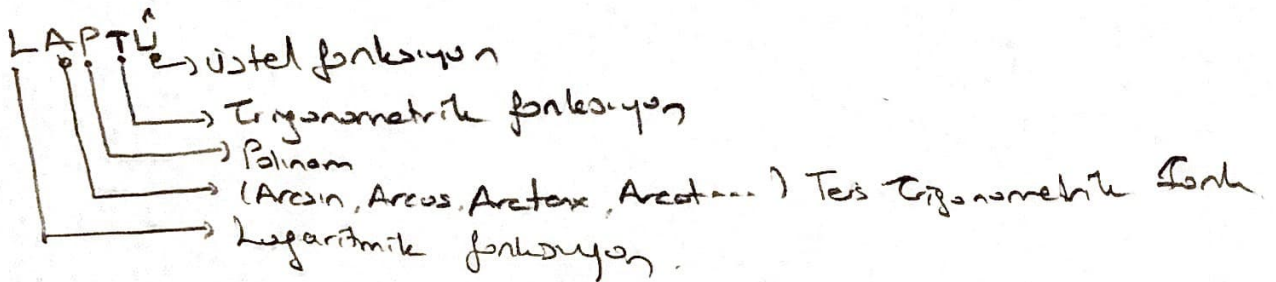 LAPTÜ
üstel fonksiyon
Trigonometrik fonksiyon
Polinom
(Arcsin, Arccos, Arctanx, Arccot....) Ters Trigonometrik Fonk
Logaritmik fonksiyon.